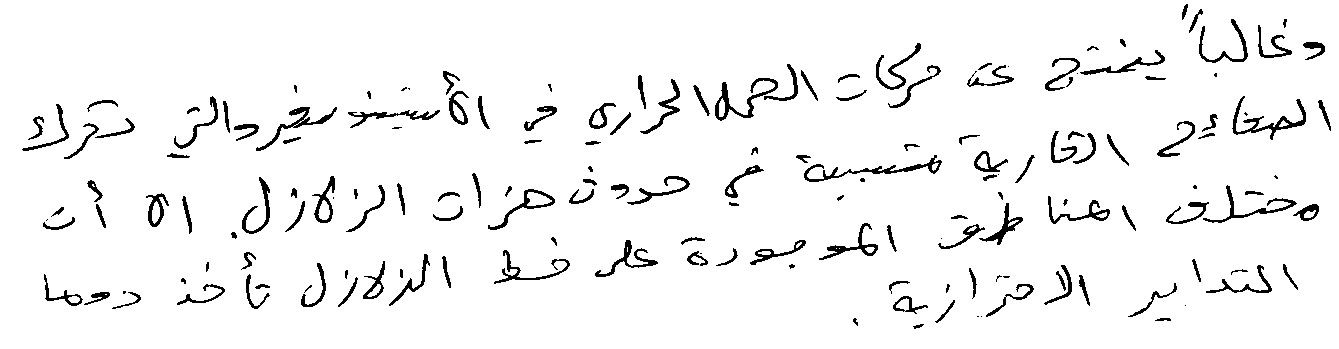 وغالباً ينتج عن حركات الحمل الحراري في الأسينوسفير والتي تحرك
الصفائح القارية متسببة في حدوث هزات الزلازل. الا أن
مختلف المناطق الموجودة على خط الزلازل تأخذ دوما
التدابير الاحترازية .